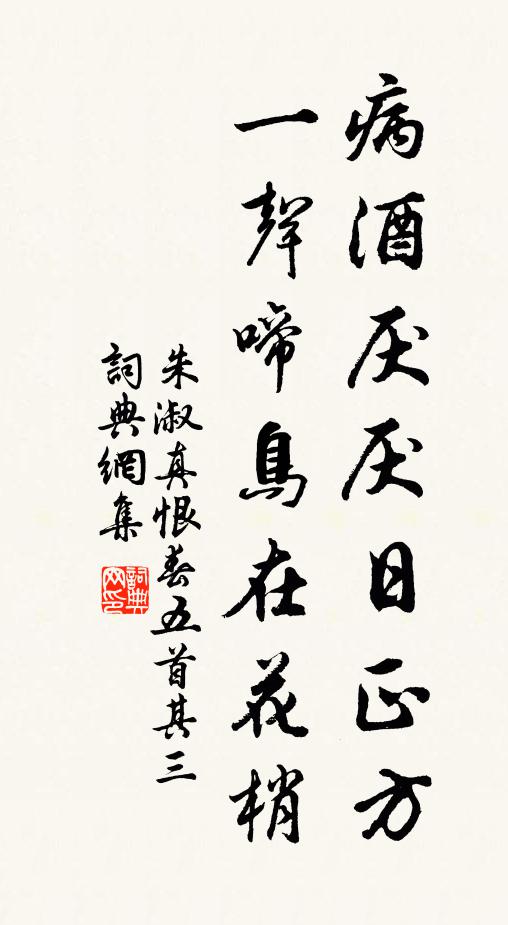 病酒厌厌日正方
一聲啼鳥在花梢
朱淑真恨春五首其三
詞典網集
詞典网印